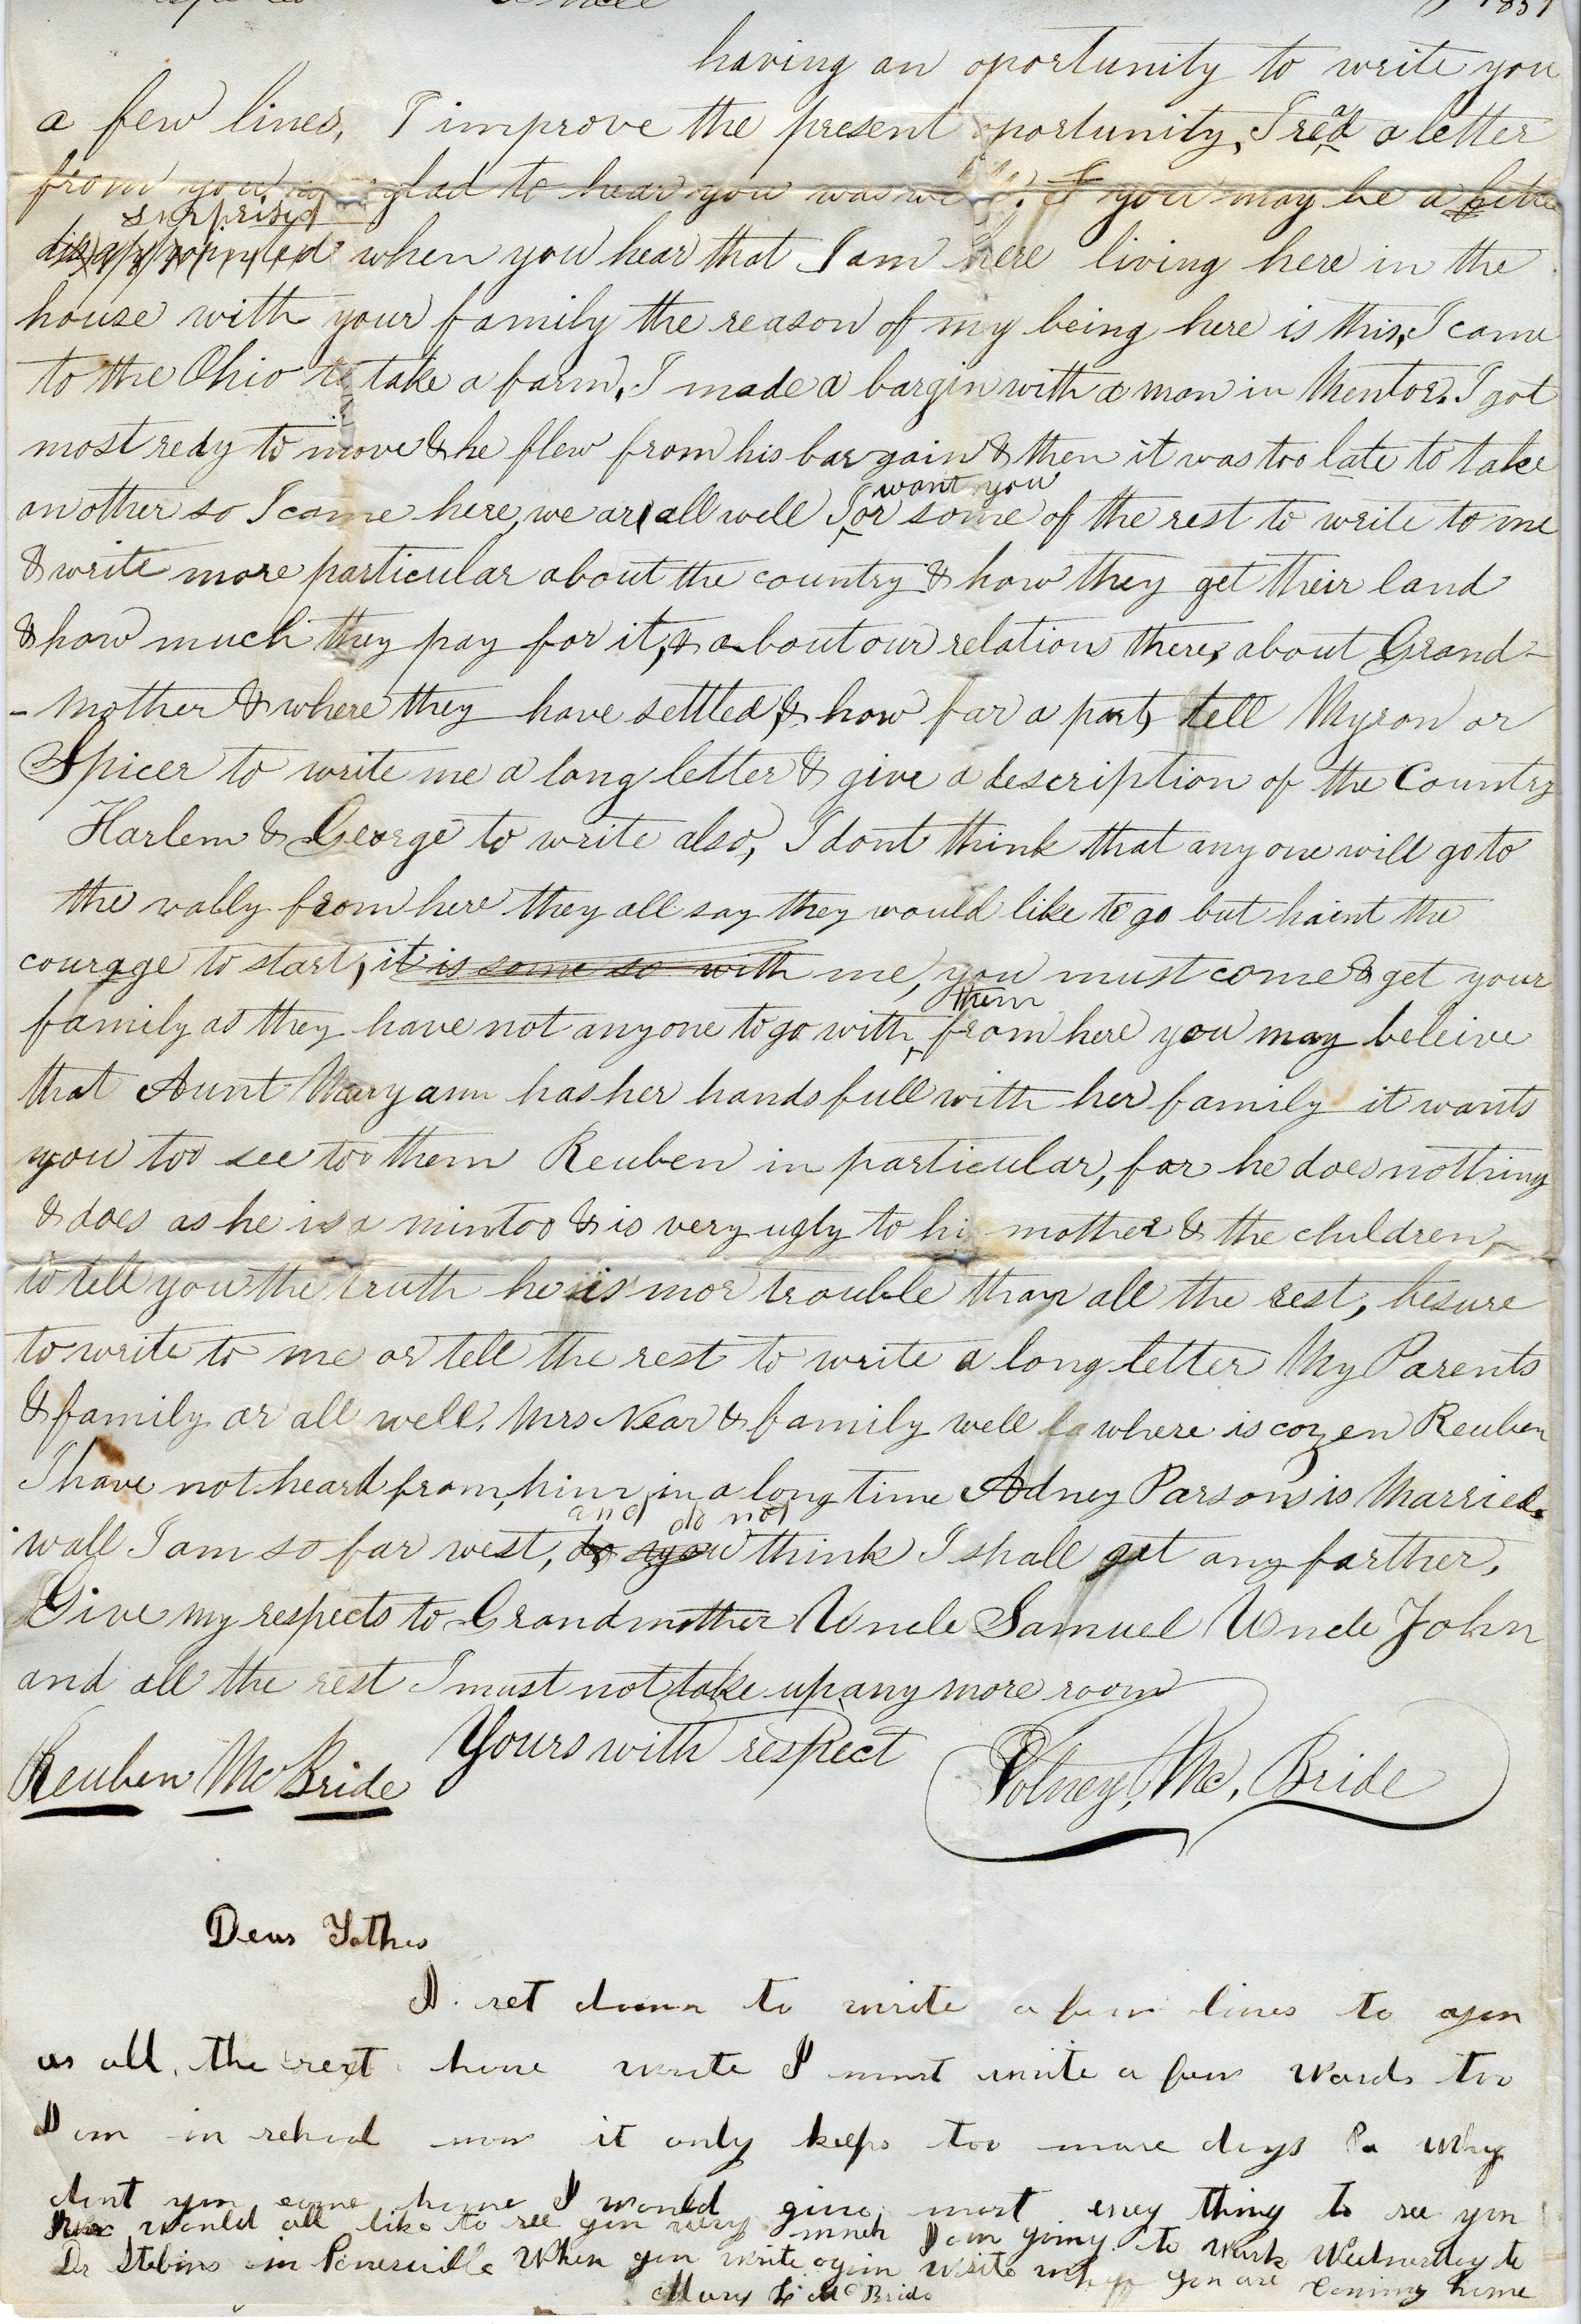 1851
having an oportunity to write you
a few lines, I improve the present oportunity, I read a letter
from you glad to hear you was well. you may be a little
surprised
disappointed when you hear that I am here living here in the
house with your family the reason of my being here is this, I came
to the Ohio to take a farm, I made a bargin with a man in Mentor. I got
most redy to move & he flew from his bargain & then it was too late to take
want you
another so I came here, we are all well I or some of the rest to write to me
& write more particular about the country & how they get their land
& how much they pay for it, & about our relation there, about Grand-
-mother & where they have settled, & how far a part, tell Myron or
Spicer to write me a long letter & give a description of the Country
Harlem & George to write also, I dont think that any one will go to
the vally from here they all say they would like to go but haint the
courage to start, it is some so with me, you must come & get your
them
family as they have not anyone to go with from here you may beleive
that Aunt Maryann has her hands full with her family it wants
you too see too them Reuben in particular, for he does nothing
& does as he is a mintoo & is very ugly to hi mother & the children,
to tell you the truth he is mor trouble than all the rest, besure
to write to me or tell the rest to write a long letter My Parents
& family ar all well. Mrs Near & family well where is cozen Reuben
I have not heard from, him in a long time Adney Parsons is Married.
and do not
wall I am so far west, do you think I shall get any farther.
Give my respects to Grandmother Uncle Samuel Uncle John
and all the rest I must not take up any more room
Yours with respect
Reuben McBride Volney, Mc, Bride
Dear Father
I set down to write a few lines to you
as all the rest have write I must write a few words too
I am in school now it only keeps too more days Pa why
dont you come home I would give most evey thing to see you
We would all like to see you very much I am going to work Wednesday to
Dr Stebins in Painesville When you write again write when you are coming home
Mary L McBride